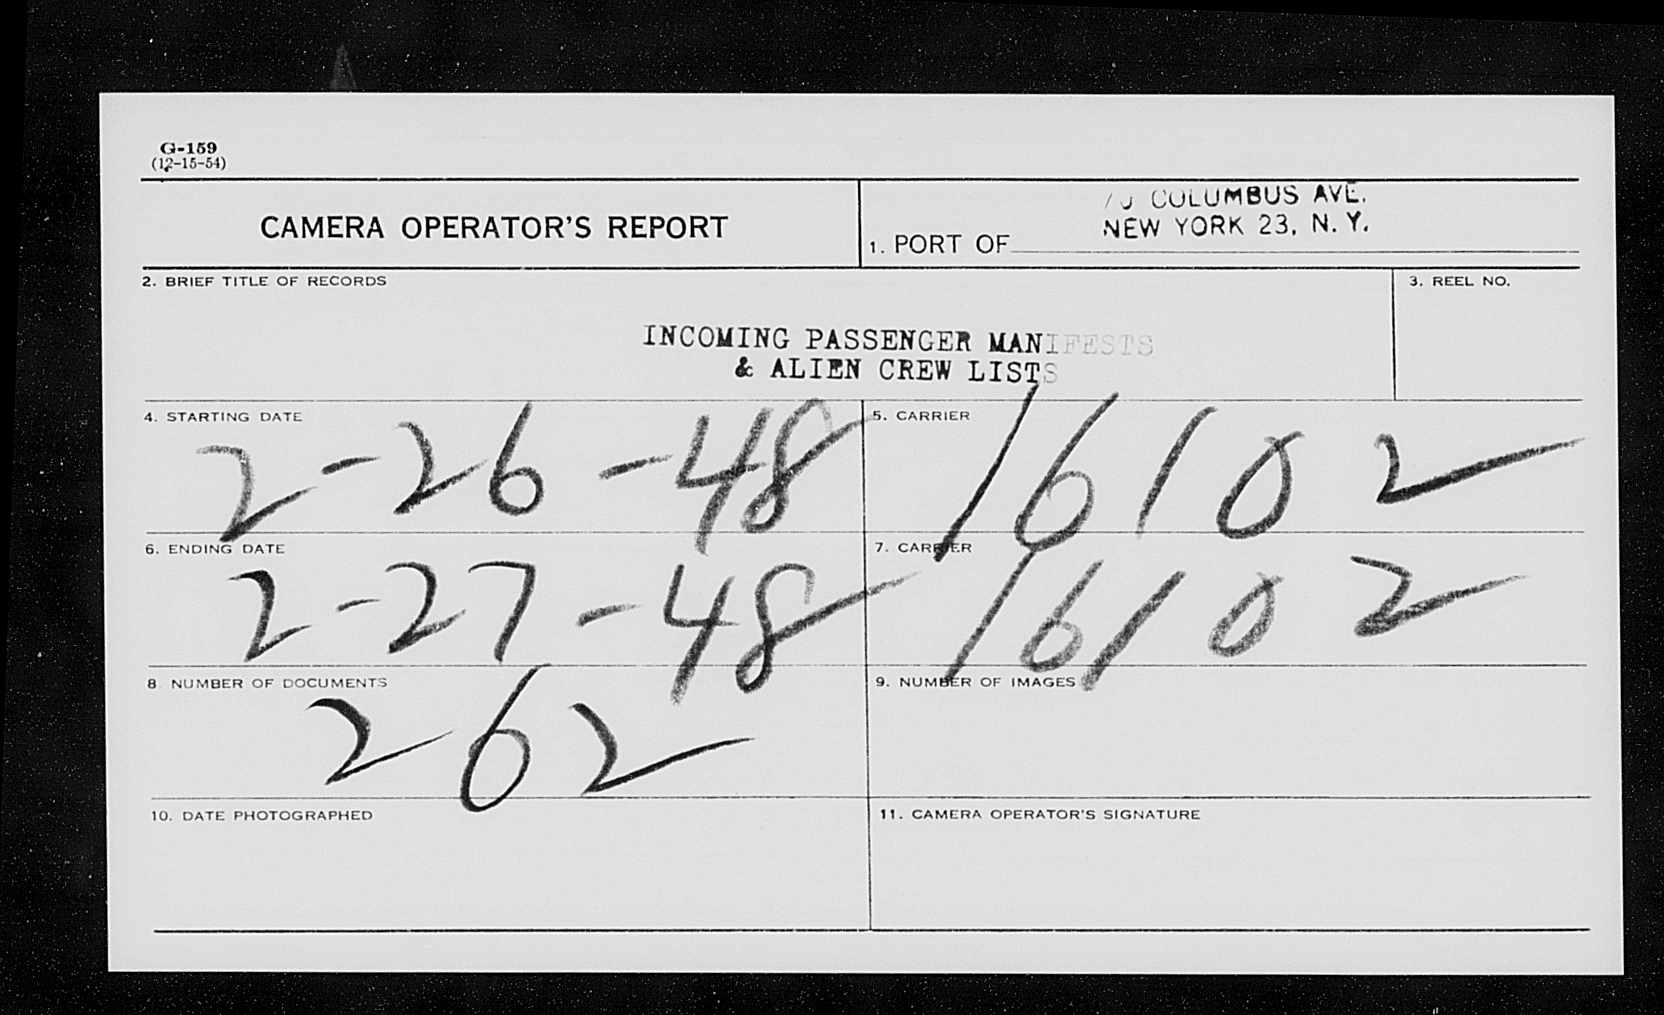 G-159
(12-15-54)
CAMERA OPERATOR'S REPORT
COLUMBUS AVE.
NEW YORK 23, N. Y.
1. PORT OF
2. BRIEF TITLE OF RECORDS
3. REEL NO.
INCOMING PASSENGER MANIFESTS
& ALIEN CREW LISTS
4. STARTING DATE
2-26-48
5. CARRIER
16102
6. ENDING DATE
2-27-48
7. CARRIER
16102
8. NUMBER OF DOCUMENTS
262
9. NUMBER OF IMAGES
10. DATE PHOTOGRAPHED
11. CAMERA OPERATOR'S SIGNATURE